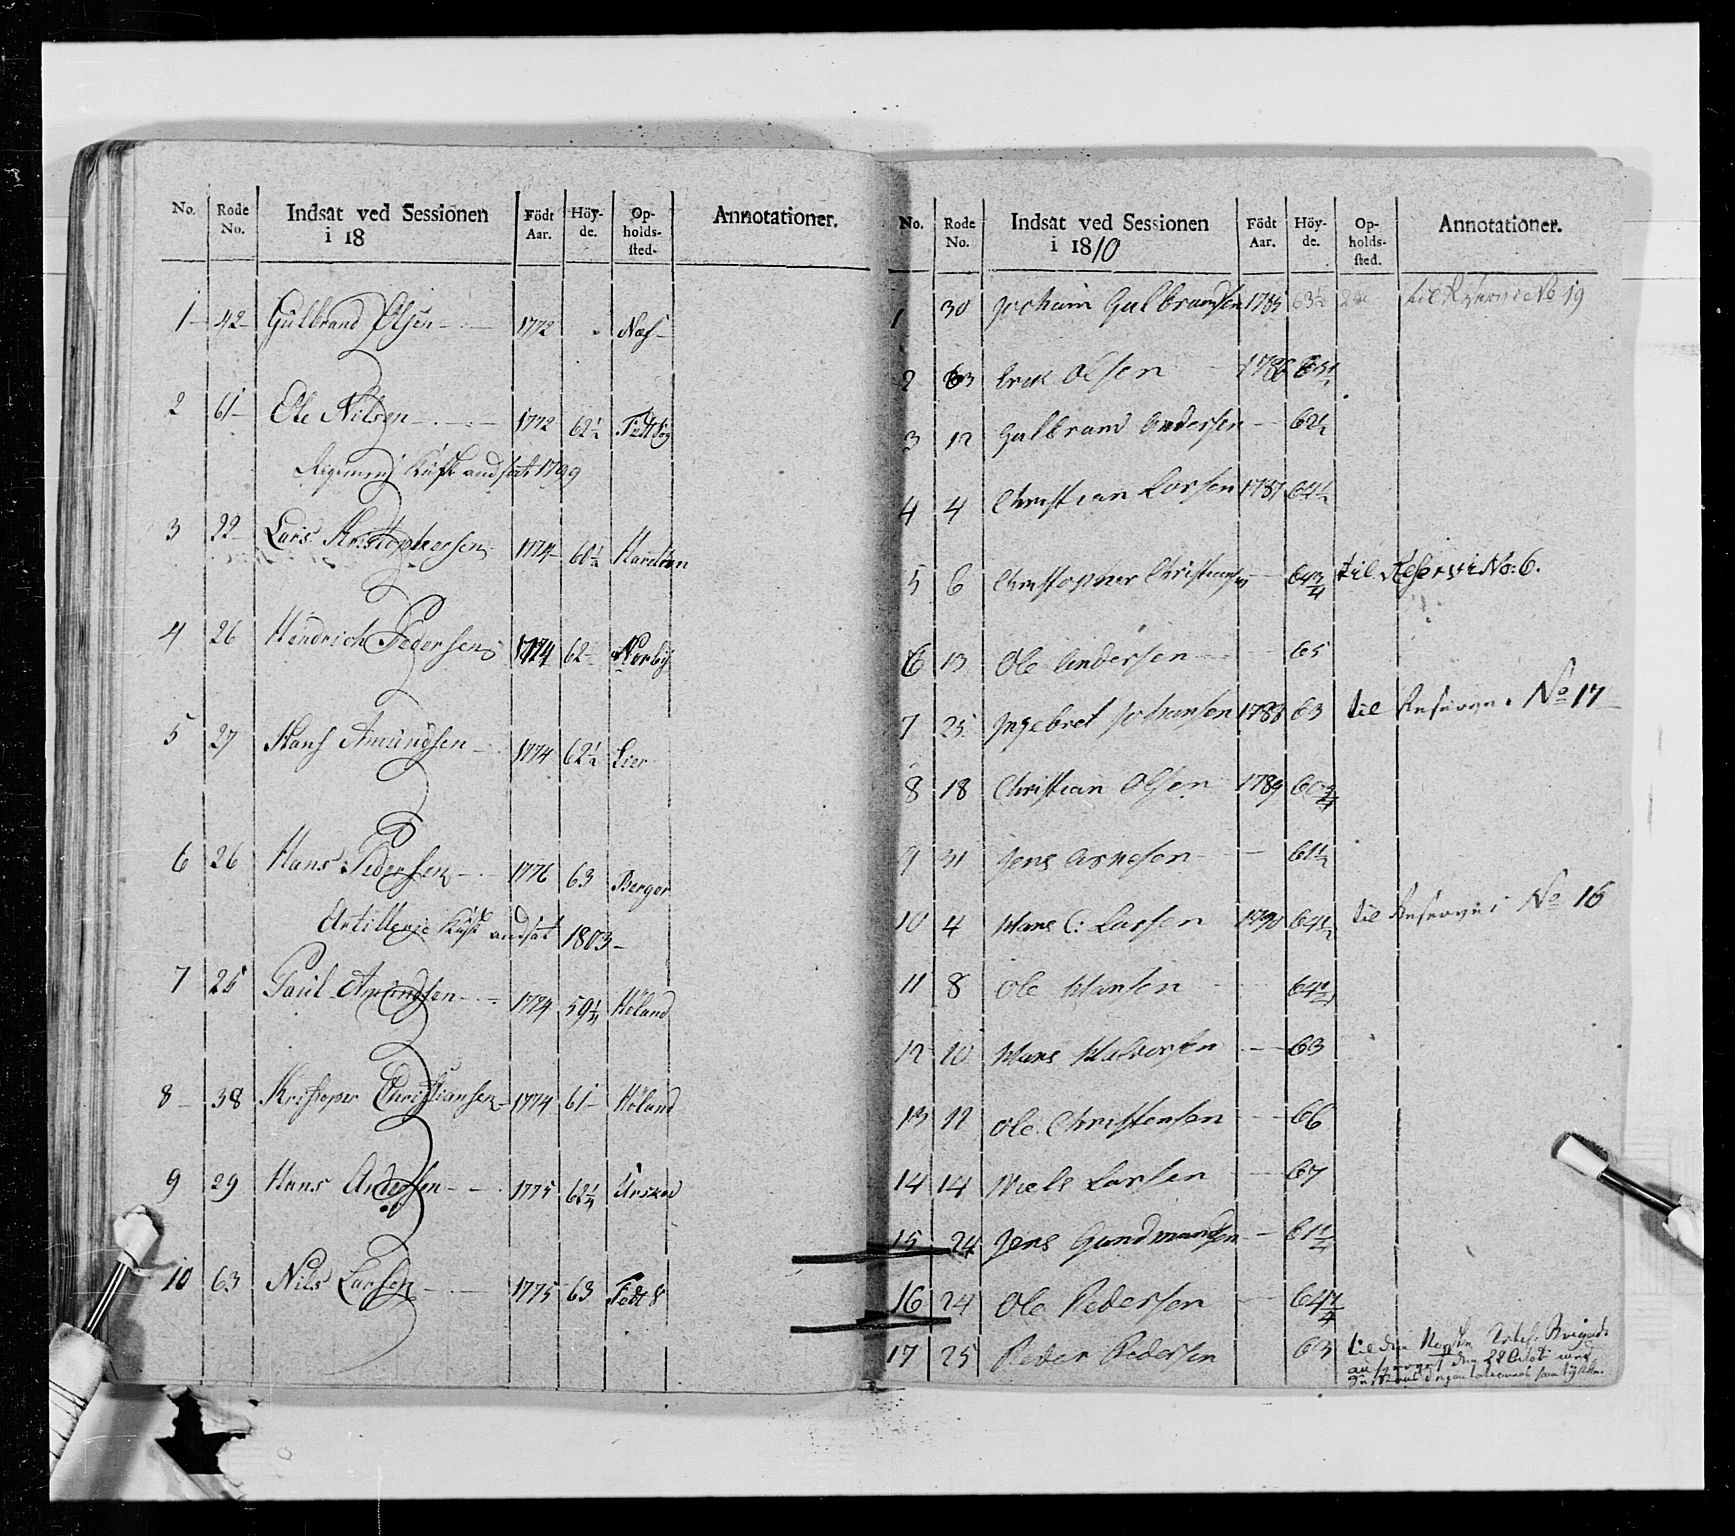 No. Rode No. Indsat ved Sessionen i 18 Födt Aar. Höy-de. Op-holds-sted. Annotationer.
1 42 Gulbrand Olsen 1772 Næs
2 61 Ole Nilsen 1772 62½
andsat 1799
3 22 Lars Kristophersen 1774 60½
4 26 Hendrich Pedersen 1774 62 Norby
5 27 Hans Amundsen 1774 62½ Lier
6 26 Hans Pedersen 1776 63 Berger
Artillerie Kusk andsat 1803
7 25 Paul Amundsen 1774 59¼ Höland
8 38 Kristoper Christiansen 1774 61 Höland
9 29 Hans Andersen 1775 62¼ Urskov
10 63 Nils Larsen 1775 63
No. Rode No. Indsat ved Sessionen i 1810 Födt Aar. Höy-de. Op-holds-sted. Annotationer.
1 30 Jocham Gulbrandsen 1785 63½ til Reserve No 19
2 63 Erik Olsen 1786
3 12 Gulbrand Andersen 62½
4 4 Christian Larsen 1787 64½
5 6 Christopher Christiansen 64¾ til Reserve No: 6.
6 13 Ole Andersen 65
7 25 Ingebret Johansen 1788 63 til Reserve No 17
8 18 Christian Olsen 1789 60¾
9 31 Jens Arnesen 61½
10 4 Hans C: Larsen 1790 64½ til Reserve No 16
11 8 Ole Hansen 64½
12 10 Hans Halvorsen 63
13 12 Ole Christensen 66
14 14 Niels Larsen 67
15 24 Jens Gundmundsen 61¼
16 24 Ole Pedersen 64¼
17 25 Peder Pedersen 63 til den Norske Brigade
den 28 Octob: